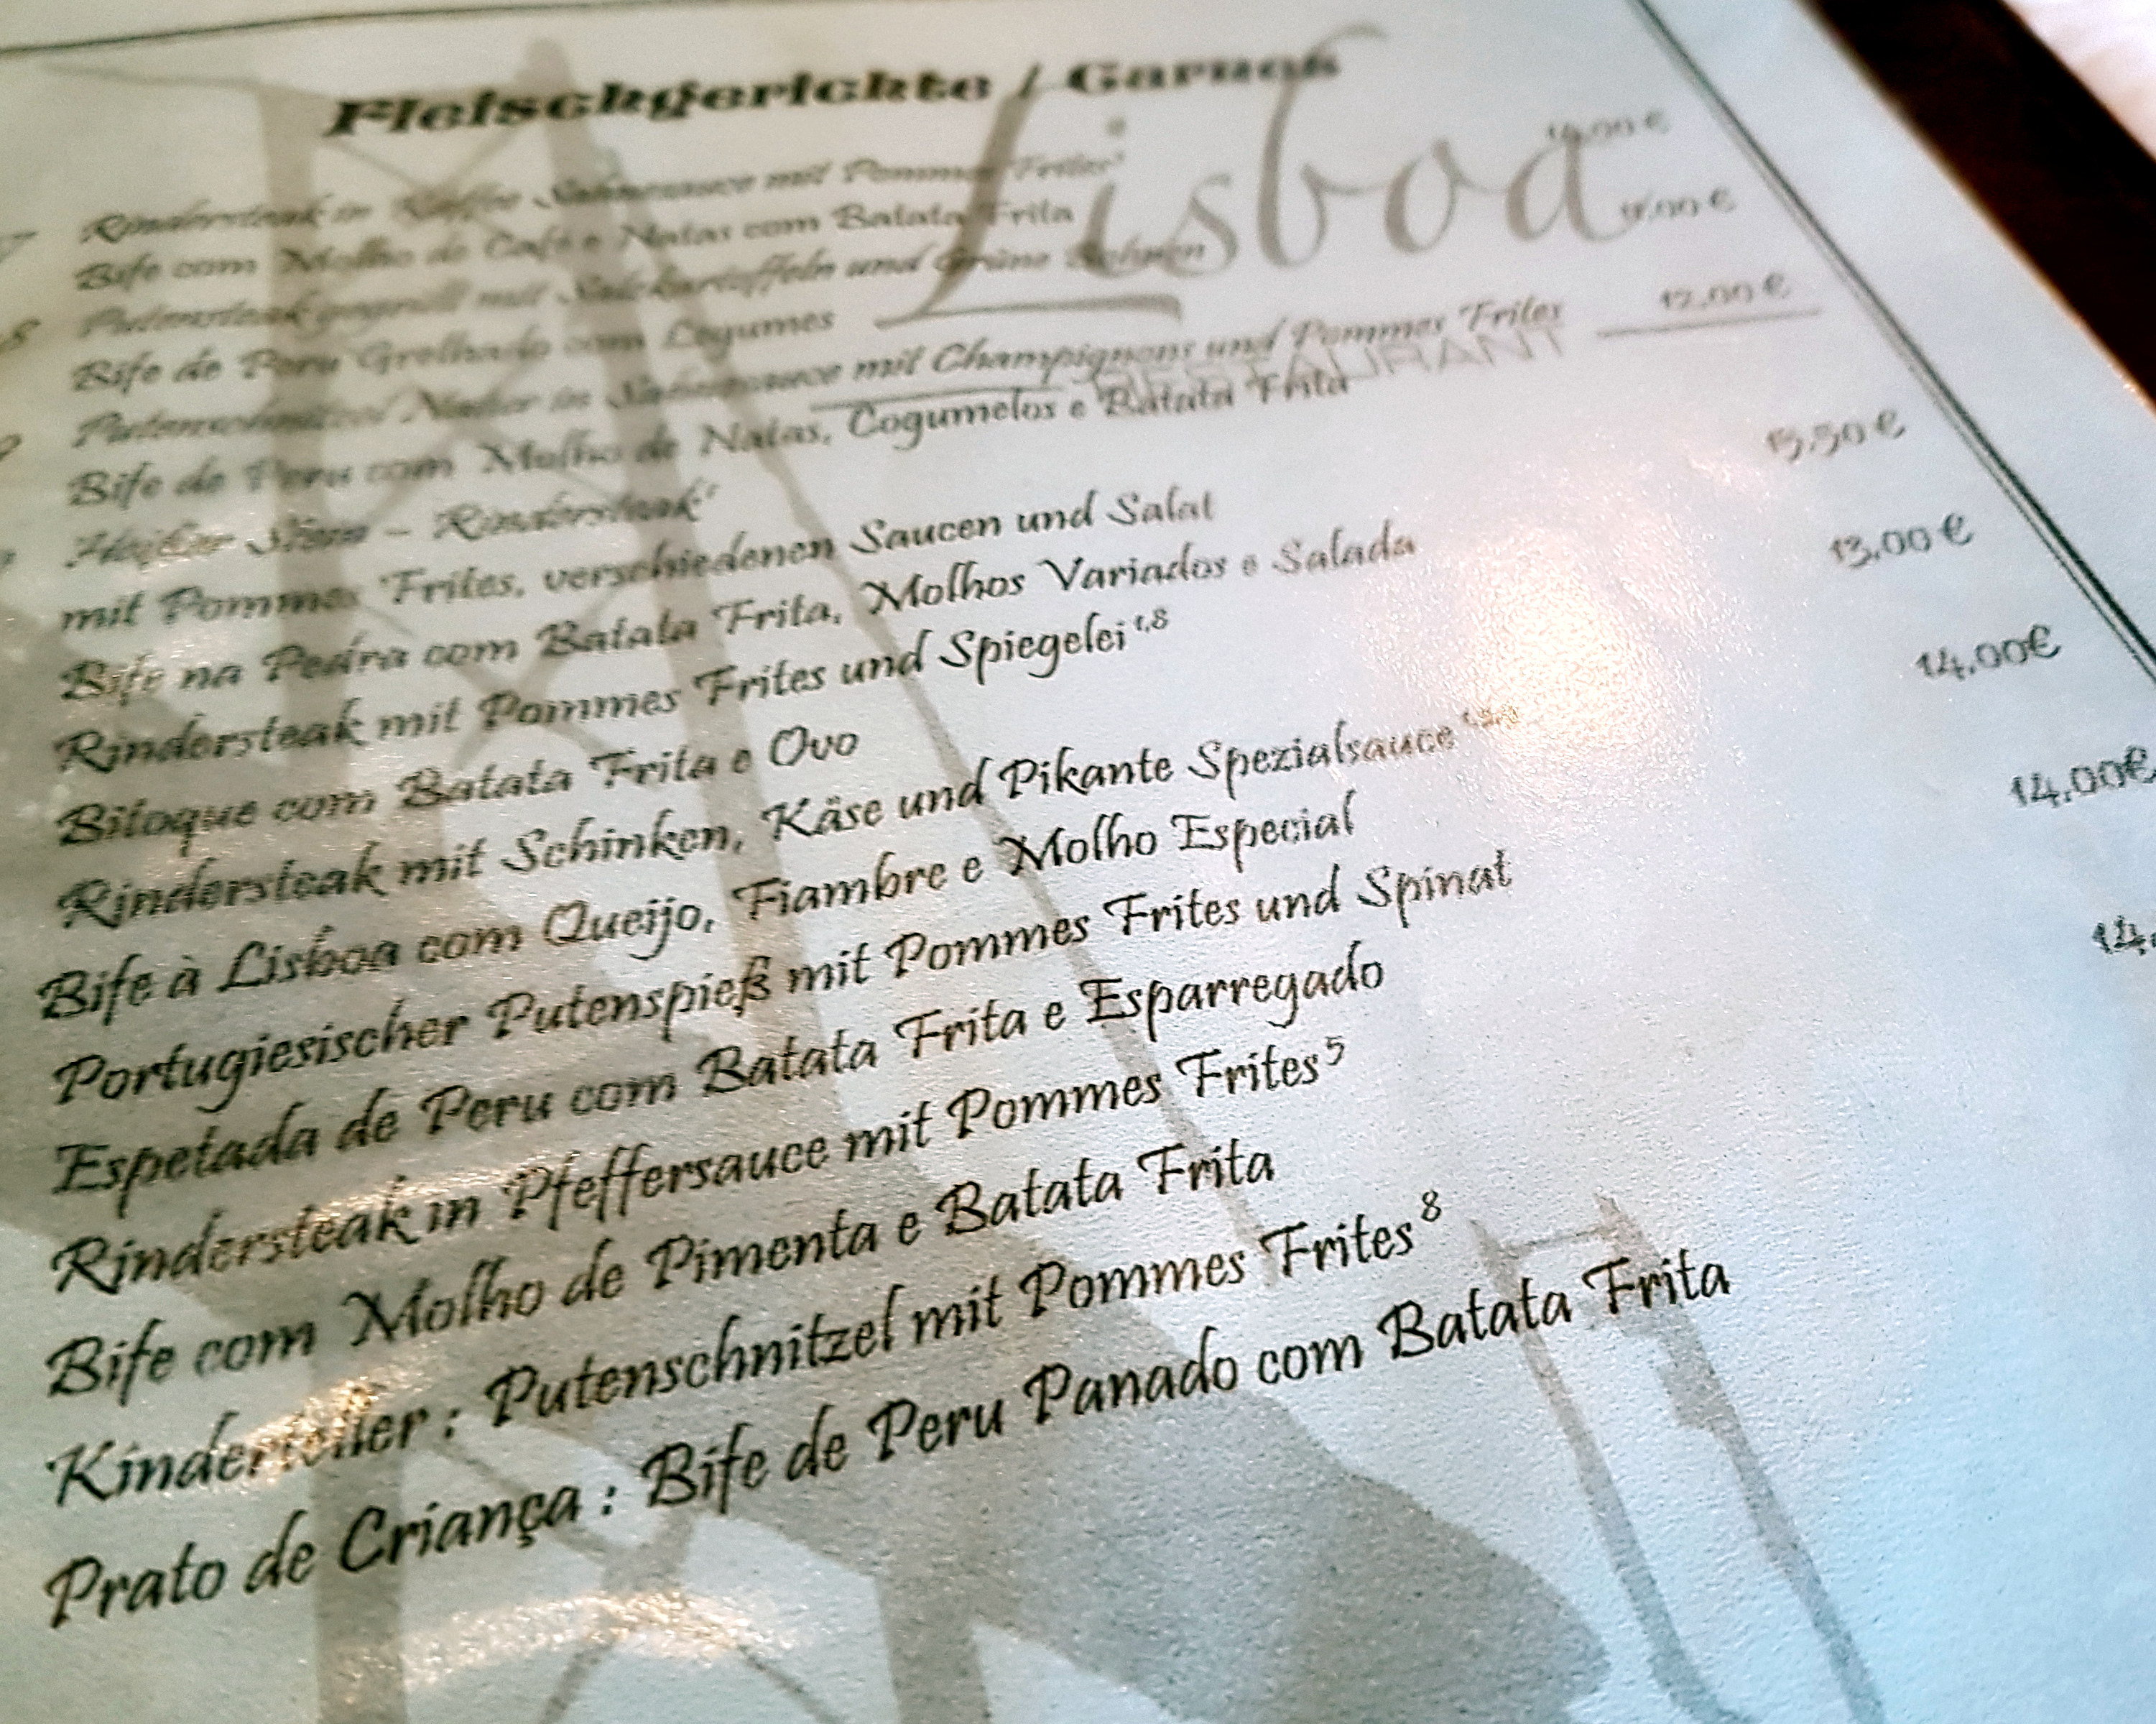 Fleischgerichte / Carnes
Lisboa
RESTAURANT
Rindersteak in Kaffee Sahnesauce mit Pommes Frites
14,00 €
Bife com Molho de Café e Natas com Batata Frita
Putensteak gegrillt mit Salzkartoffeln und Grüne Bohnen
€
Bife de Peru Grelhado com Legumes
Putenschnitzel Natur in Sahnesauce mit Champignons und Pommes Frites
12,00 €
Bife de Peru com Molho de Natas, Cogumelos e Batata Frita
Heißer Stein - Rindersteak
mit Pommes Frites, verschiedenen Saucen und Salat
15,50 €
Bife na Pedra com Batata Frita, Molhos Variados e Salada
Rindersteak mit Pommes Frites und Spiegelei 1,8
13,00 €
Bitoque com Batata Frita e Ovo
Rindersteak mit Schinken, Käse und Pikante Spezialsauce
14,00€
Bife à Lisboa com Queijo, Fiambre e Molho Especial
Portugiesischer Putenspieß mit Pommes Frites und Spinat
14,00€
Espetada de Peru com Batata Frita e Esparregado
Rindersteak in Pfeffersauce mit Pommes Frites 5
14,
Bife com Molho de Pimenta e Batata Frita
Kinderteller : Putenschnitzel mit Pommes Frites 8
Prato de Criança : Bife de Peru Panado com Batata Frita